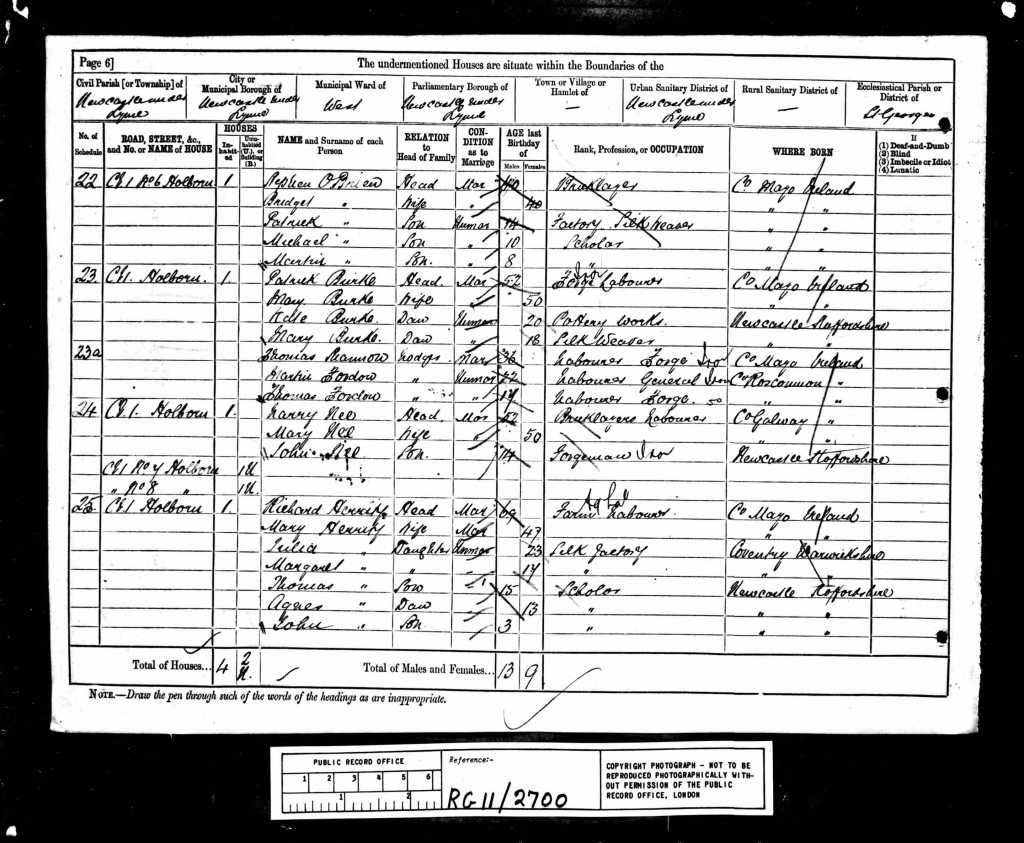 Page 6]
The undermentioned Houses are situate within the Boundaries of the
Civil Parish [or Township] of Newcastle under Lyme
City or Municipal Borough of Newcastle under Lyme
Municipal Ward of West
Parliamentary Borough of Newcastle under Lyme
Town or Village or Hamlet of —
Urban Sanitary District of Newcastle under Lyme
Rural Sanitary District of —
Ecclesiastical Parish or District of St Georges
No. of Schedule
ROAD, STREET, &c., and No. or NAME of HOUSE
HOUSES
Inhabited
Uninhabited (U.), or Building (B.)
NAME and Surname of each Person
RELATION to Head of Family
CONDITION as to Marriage
AGE last Birthday of
Males
Females
Rank, Profession, or OCCUPATION
WHERE BORN
If
(1) Deaf-and-Dumb
(2) Blind
(3) Imbecile or Idiot
(4) Lunatic
22 No 6 Holborn 1 Stephen O'Brien Head Mar 40 Bricklayer Co Mayo Ireland
Bridget " Wife " 40 " "
Patrick " Son Unmar 14 Factory Silk Weaver " "
Michael " Son " 10 Scholar " "
Martin " Son " 8 " " "
23 Holborn 1 Patrick Burke Head Mar 52 Iron Forge Labourer Co Mayo Ireland
Mary Burke Wife " 50 " "
Burke Daw Unmar 20 Pottery Works Newcastle Staffordshire
Mary Burke Daw " 18 Silk Weaver " "
23a Thomas Lodger Mar 36 Labourer Forge Iron Co Mayo Ireland
Martin Unmar 22 Labourer General Iron Co Roscommon "
Thomas " " Labourer Forge " "
24 Holborn 1 Harry Nee Head Mar 52 Bricklayers Labourer Co Galway "
Mary Nee Wife " 50 " "
John Nee Son 14 Forgeman Iron Newcastle Staffordshire
No 7 Holborn 1U
" No 8 " 1U
25 Holborn 1 Richard Head Mar 69 Farm Labourer Ag Lab Co Mayo Ireland
Mary Wife Mar 47 " "
Julia " Daughter Unmar 23 Silk Factory Coventry Warwickshire
Margaret " " " " " "
Thomas " Son " 15 Scholar Newcastle Staffordshire
Agnes " Daw " 13 " " "
John " Son " 3 " " "
Total of Houses... 4 2 U.
Total of Males and Females... 13 9
NOTE.—Draw the pen through such of the words of the headings as are inappropriate.
PUBLIC RECORD OFFICE
1 2 3 4 5 6
1 2
Reference:-
RG 11/2700
COPYRIGHT PHOTOGRAPH - NOT TO BE
REPRODUCED PHOTOGRAPHICALLY WITH-
OUT PERMISSION OF THE PUBLIC
RECORD OFFICE, LONDON